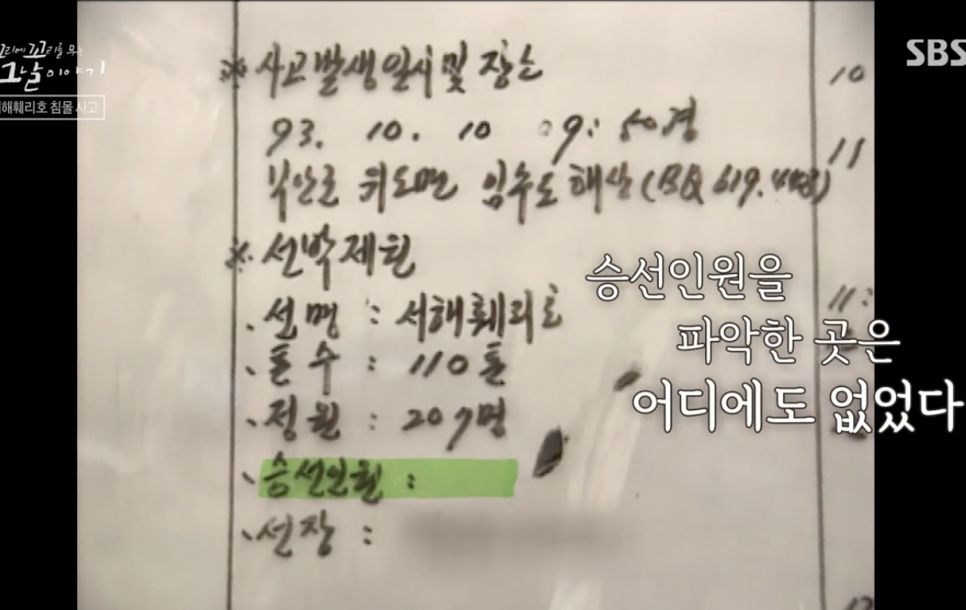 꼬리에 꼬리를 무는
그날 이야기
서해훼리호 침몰 사고
SBS
※ 사고발생일시 및 장소
93. 10. 10 09:50경
부안군 위도면 임수도 해상(BQ 619.448)
※ 선박제원
. 선명 : 서해훼리호
. 톤수 : 110톤
. 정원 : 207명
. 승선인원 :
. 선장 :
10
11
11:
승선인원을
파악한 곳은
어디에도 없었다